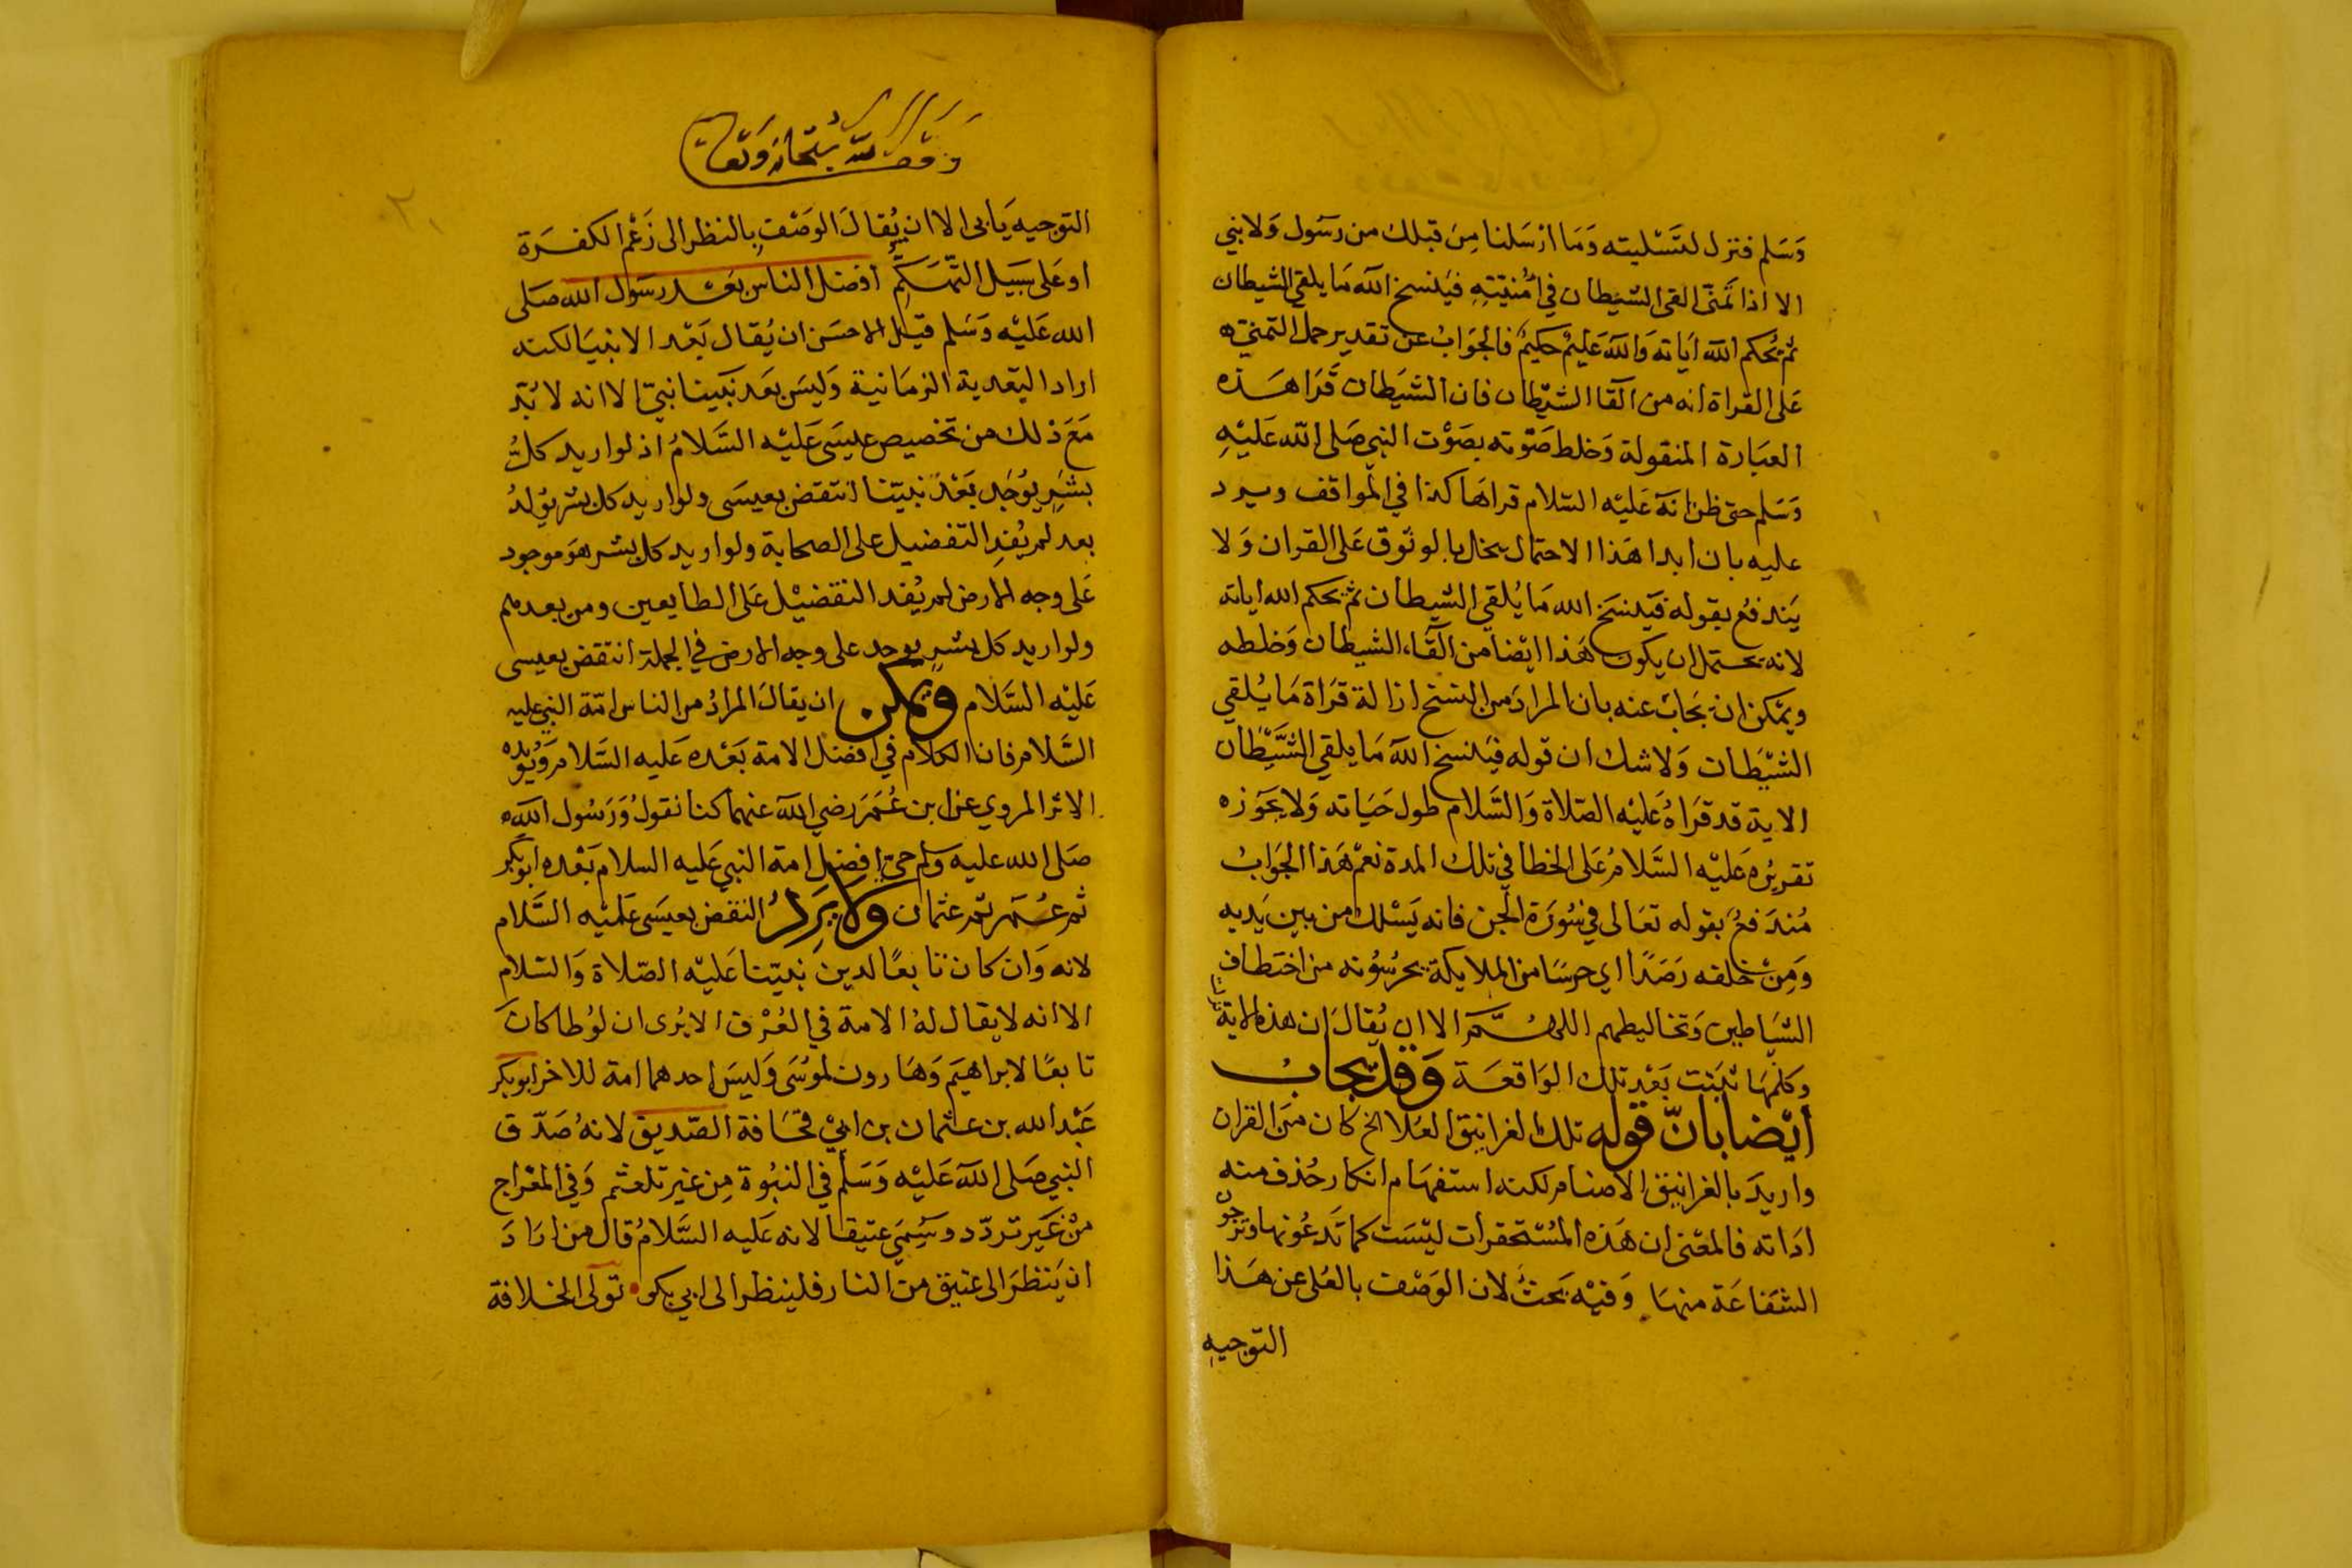 وَسَلم فنزل لتَسْليته وَمَا ارْسَلنا مِن قبلك من رسَول وَلا نبي
الا اذا تمَنّى القى الشيَطان في أمُنيّتِهِ فيَنسخ الله مَا يلقي الشيطان
ثم يُحكم الله ايَاته وَالله عَليْم حكيمٌ فالجوَابُ عن تقدير حمل التمني
عَلى القراة انه من القا الشيْطان فان الشيَطان قَرَا هَذه
العبَارة المنقولة وَخلط صَوْته بصَوْت النبي صَلى الله عَليْهِ
وَسَلم حتى ظن انهَ عَليْه السّلام قراهَا كذا في المواقف ويرد
عليه بان ابدا هَذا الاحتمال يخل بالوثوق عَلى القران وَلا
يَندفعُ بقوله فيَنسَخ الله مَا يُلقي الشيطان ثم يحكم الله اياته
لانه يحتمل ان يكون هَذا ايْضا من القَاء الشيطان وَخلطه
ويمكن ان يجَابَ عنه بان المرادَ من النسَخ ازالة قرَاة مَا يُلقي
الشيْطَان وَلا شك ان قوله فيَنسخ الله مَا يلقي الشيْطان
الاية قد قرَاهُ عَليْه الصّلاة وَالسَّلام طول حَيَاته وَلا يجوَزه
تقريرُه عَليْه السَّلامُ عَلى الخطا في تلك المدة نعم هَذا الجَوابُ
مُندَفعُ بقوله تعَالى في سُورَة الجن فانه يَسْلك من بين يَديه
وَمِنْ خلفه رَصَدًا اي حرسَا من الملايكة يحرسُوُنه من اختطاف
الشيَاطين وَتخاليطهم اللهُمَّ الا ان يُقالَ ان هذه الاية نزلت
وكلمهَا ثبَتت بَعْد تلك الوَاقعَة وَقد يجابُ
أيْضا بانّ قوله تلك الغرانيق العُلا الخ كان منَ القران
واريدَ بالغرانيق الاصنام لكنه استفهَام انكار حُذف منه
ادَاته فالمعْنى ان هَذه المُسْتحقرات ليْسَت كما تَدعُونها وترجون
الشفاعَة منهَا وَفيْه بَحثٌ لان الوَصْف بالعُلى عن هَذا
التوجيه
وقف لله سُبحَانه وَتعَالى
٢٠
التوجيه يَابى الا ان يُقالَ الوَصْف بالنظر الى زَعْم الكفرَة
او عَلى سبيَل التّهَكمِّ افضل الناس بَعْد رسَول الله صَلى
الله عَليْه وَسَلم قيْل الاحسَن ان يُقال بَعْد الانبيَا لكنه
اراد البَعدية الزمَانية وَليسَ بعَد نبَينا نبيّ الا انه لا بُدّ
مَعَ ذلك من تخصيص عيسَى عَليْه السَّلامُ اذ لو اريد كلُّ
بشَرٍ يوُجَد بَعْدَ نبيّنا انتقض بعيسَى ولو اريد كل بشر يوُلدُ
بعد لم يُفدِ التفضيل على الصحابة ولو اريد كل بشر هوَ موجود
عَلى وجه الارض لم يُفد التفضيْل عَلى الطايعين ومن بعدهم
ولو اريد كل بشرٍ يوجد على وجه الارض في الجملة انتقض بعيسى
عَليْه السَّلام ويمكن ان يقالَ المرادُ من الناس امّة النبي عليه
السَّلام فان الكلام في افضل الامة بَعْده عَليه السَّلام وَيُويّده
الاثر المروي عن ابن عُمَرَ رضي الله عنهما كنا نقولُ وَرَسُول الله
صَلى الله عليه وسلم حيّ افضل امة النبي عَليه السلام بَعْده ابو بكر
ثم عُمَر ثم عثمان وَلا يَرِدُ النقض بعيسَى عَليْه السَّلام
لانه وَان كان تابعًا لدين نبيّنا عَليْه الصّلاة وَالسّلام
الا انه لا يقال لهُ الامة في العُرْف الا يُرى ان لوُطا كانَ
تابعًا لابراهيَم وَهَارون لموُسَى وَليسَ احدهما امة للاخر ابو بكر
عَبْد الله بن عثمان بن ابيْ قحَافة الصّديق لانهُ صَدّق
النبي صَلى الله عَليْه وَسَلم في النبُوة مِن غير تلعثم وَفي المعْراج
منْ غَير تردّد وسُمَيَ عتيقا لانه عَليه السَّلامُ قال من ارَادَ
ان يَنظرَ الى عتيق منَ النار فلينظر الى ابي بكر تولى الخلافة